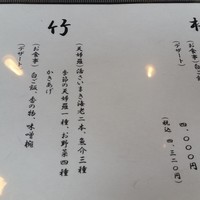 (お食事)白ご
(デザート)
四、〇〇〇円
(税込 四、三二〇円)
竹
(天婦羅)活さいまき海老二本、魚介三種
季節の天婦羅一種、お野菜四種
かきあげ
(お食事)白ご飯、香の物、味噌椀
(デザート)